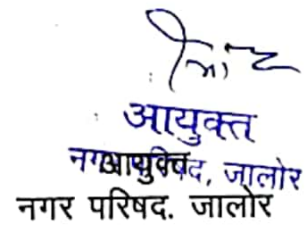 आयुक्त
नगर परिषद, जालोर
आयुक्त
नगर परिषद. जालोर